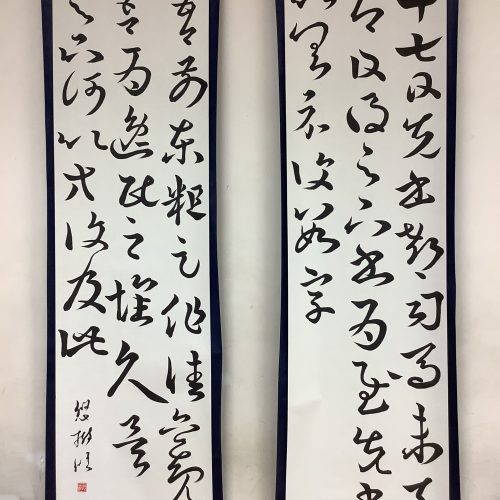 十七日先書郗司馬未去
即日得足下書為慰先書
以具示復數字
吾前東粗足作佳觀
吾為逸民之懷久矣
足下何以方復及此